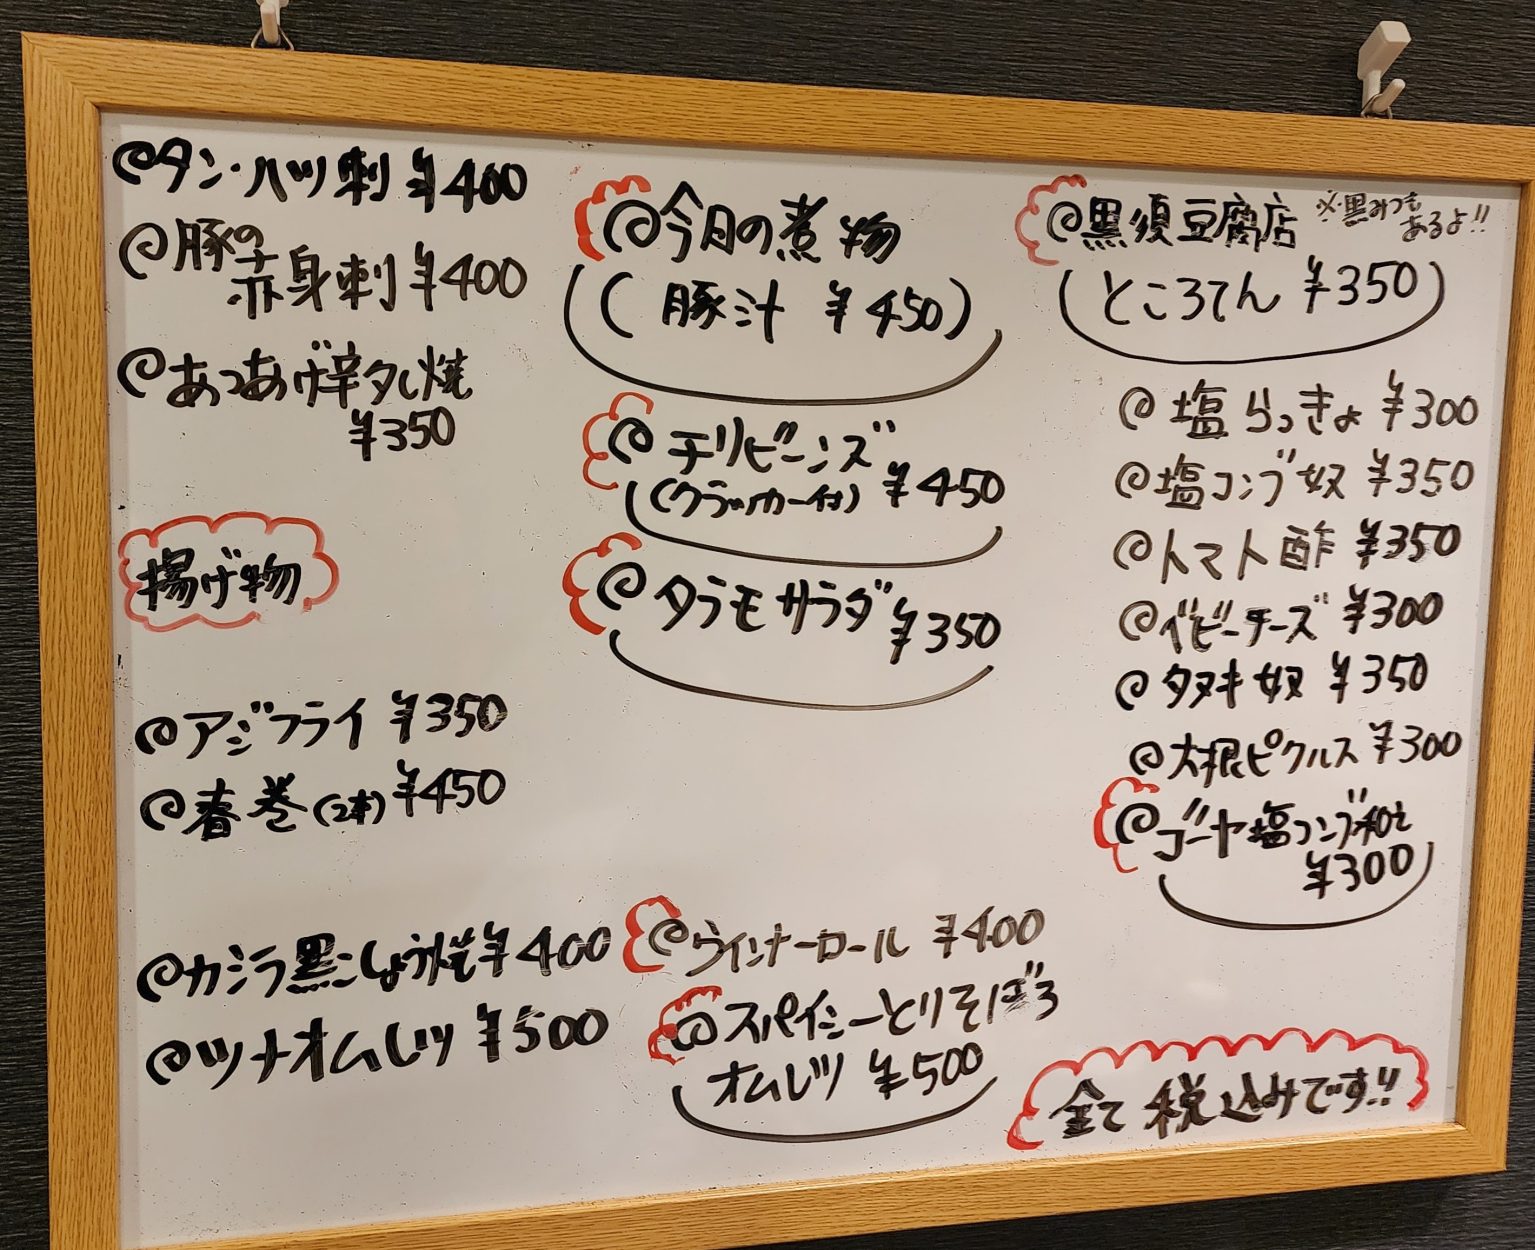 @タン・ハツ刺 ¥400
@豚の
赤身刺 ¥400
@あつあげ辛タレ焼
¥350
揚げ物
@アジフライ ¥350
@春巻(2本) ¥450
@カシラ黒こしょう焼 ¥400
@ツナオムレツ ¥500
@今月の煮物
(豚汁 ¥450)
@チリビーンズ
(クラッカー付) ¥450
@タラモサラダ ¥350
@ウインナーロール ¥400
@スパイシーとりそぼろ
オムレツ ¥500
@黒須豆腐店 ※黒みつも
あるよ!!
(ところてん ¥350)
@塩らっきょ ¥300
@塩コンブ奴 ¥350
@トマト酢 ¥350
@ベビーチーズ ¥300
@タヌキ奴 ¥350
@大根ピクルス ¥300
@ゴーヤ塩コンブ和え
¥300
全て税込みです!!